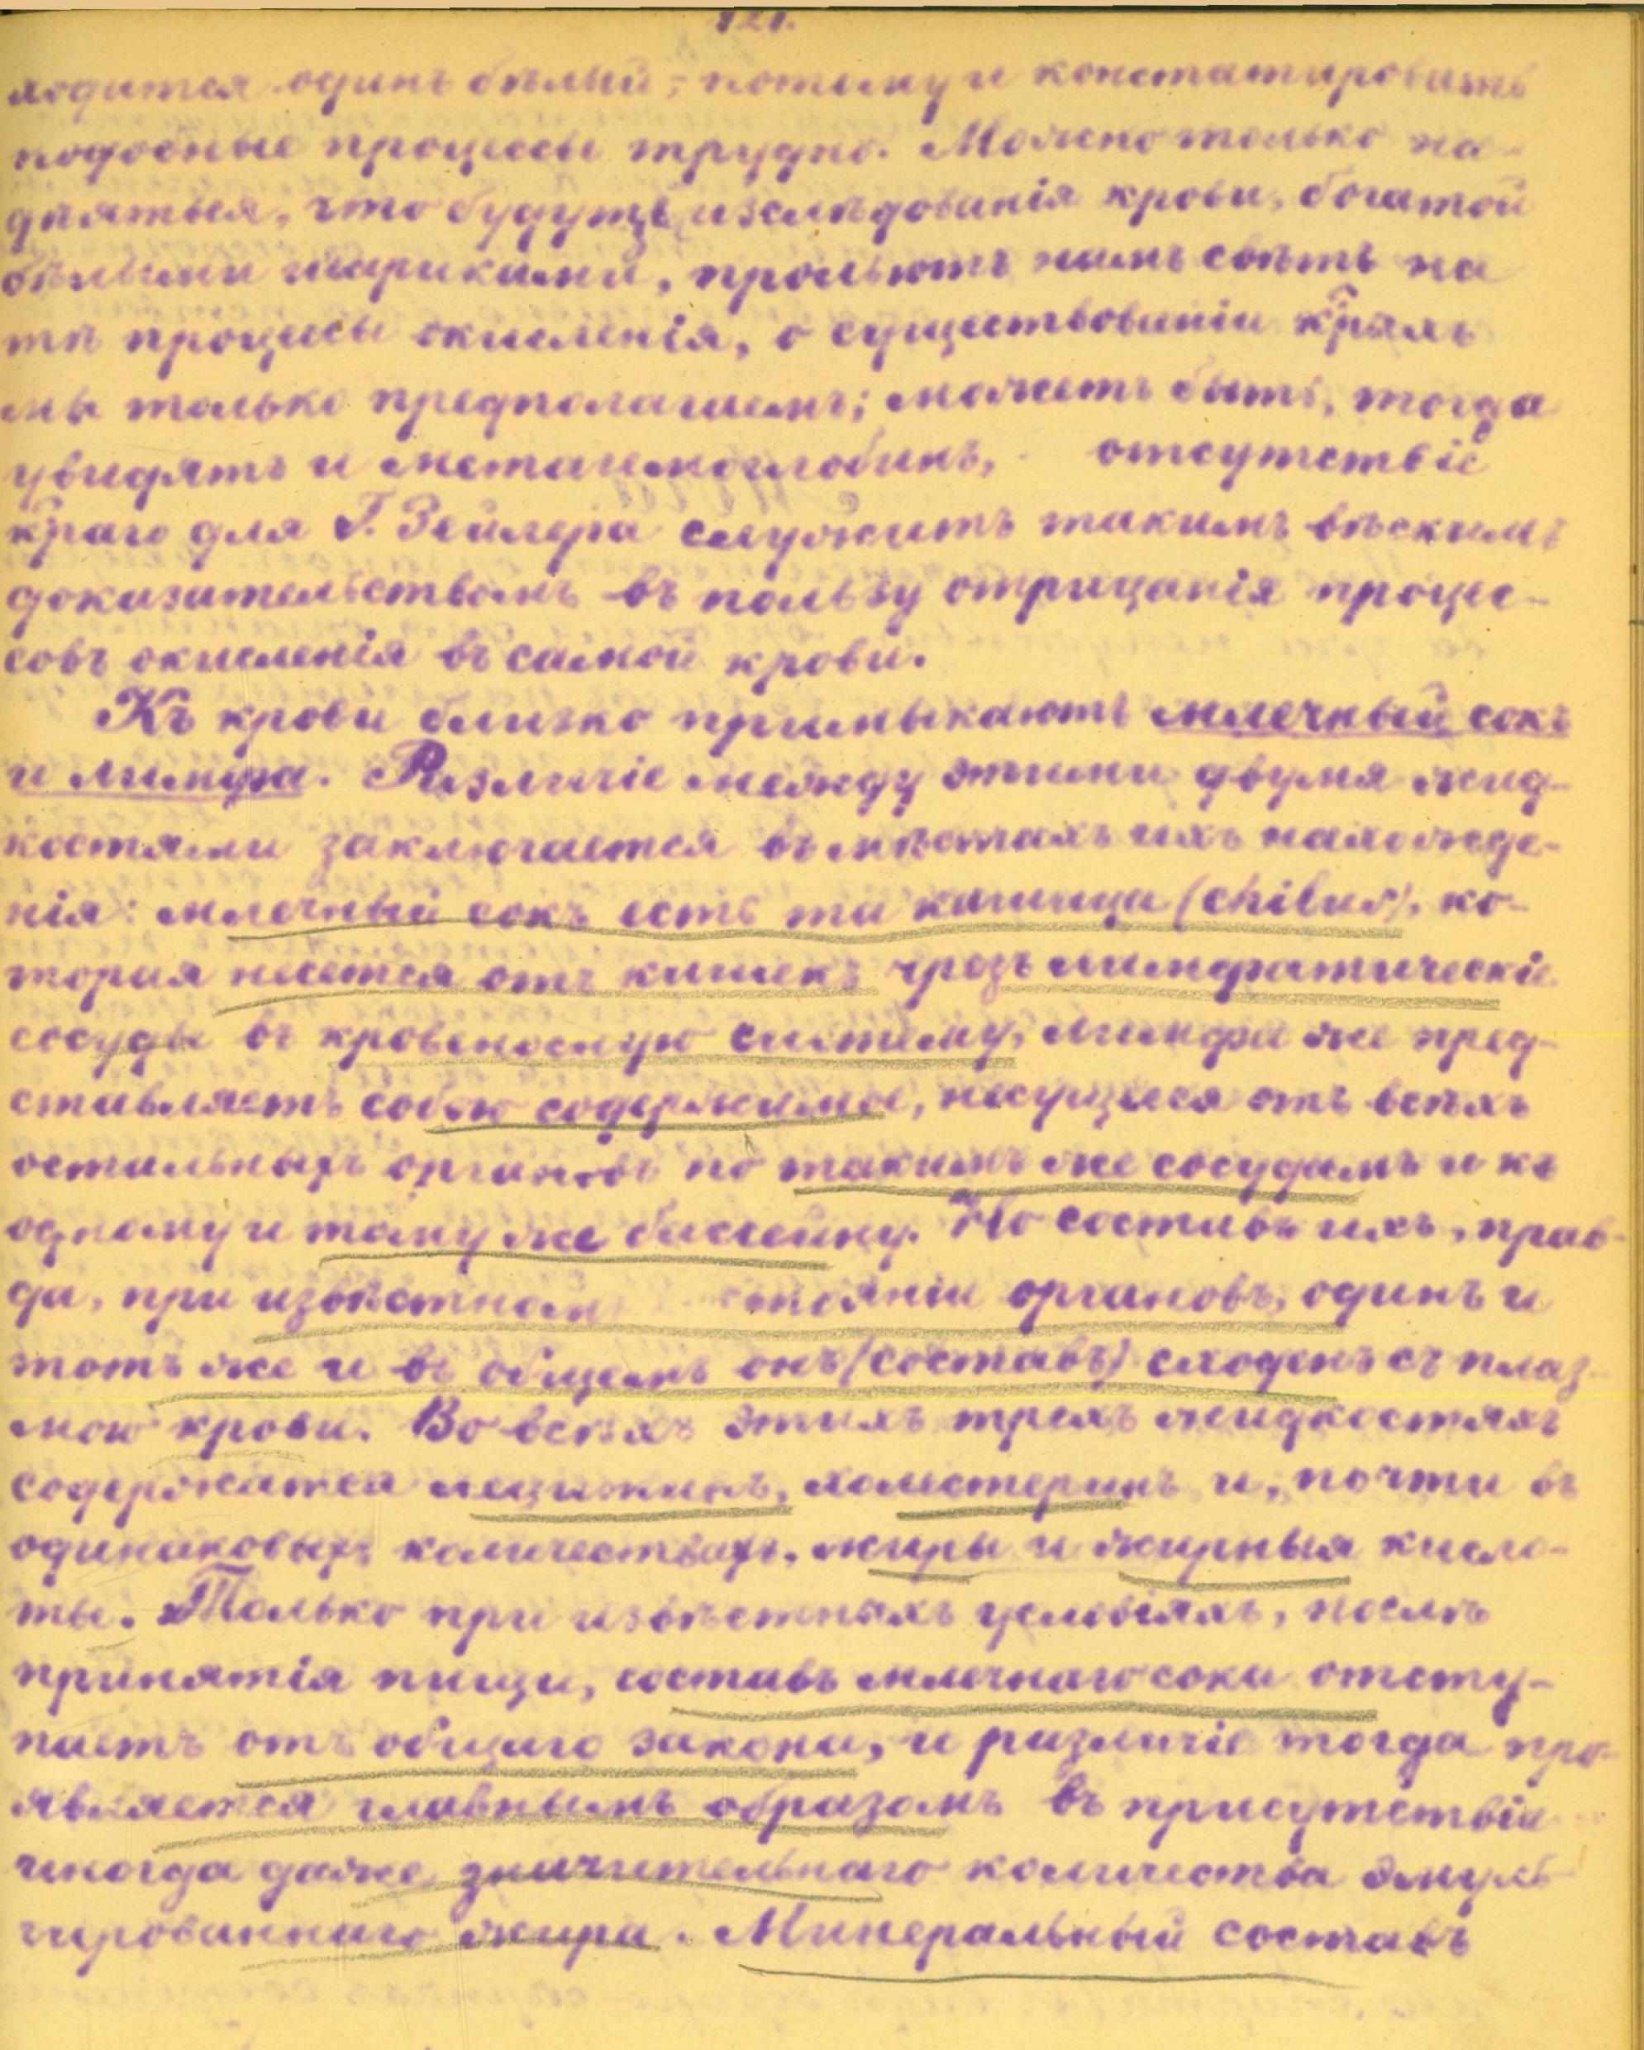 121.
ходится одинъ бѣлый; потому и констатировать
подобные процессы трудно. Можно только на-
дѣяться, что будущія изслѣдованія крови, богатой
бѣлыми шариками, прольютъ намъ свѣтъ на
тѣ процессы окисленія, о существованіи к^рыхъ
мы только предполагаемъ; можетъ быть, тогда
увидятъ и метагемоглобинъ, отсутствіе
к^раго для Г. Зейлера служитъ такимъ вѣскимъ
доказательствомъ въ пользу отрицанія процес-
совъ окисленія въ самой крови.
Къ крови близко примыкаютъ млечный сокъ
и лимфа. Различіе между этими двумя жид-
костями заключается въ мѣстахъ ихъ нахожде-
нія: млечный сокъ есть та кашица (chilus), ко-
торая несется отъ кишекъ чрезъ лимфатическіе
сосуды въ кровеносную систему, лимфа же пред-
ставляетъ собою содержимое, несущееся отъ всѣхъ
остальныхъ органовъ по такимъ же сосудамъ и къ
одному и тому же бассейну. Но составъ ихъ, прав-
да, при извѣстномъ стояніи органовъ, одинъ и
тотъ же и въ общемъ онъ (составъ) сходенъ съ плаз-
мою крови. Во всѣхъ этихъ трехъ жидкостяхъ
содержатся лецитинъ, холестеринъ и, почти въ
одинаковыхъ количествахъ, жиры и жирныя кисло-
ты. Только при извѣстныхъ условіяхъ, послѣ
принятія пищи, составъ млечнаго сока отсту-
паетъ отъ общаго закона, и различіе тогда про-
является главнымъ образомъ въ присутствіи
иногда даже значительнаго количества эмуль-
гированнаго жира. Минеральный составъ